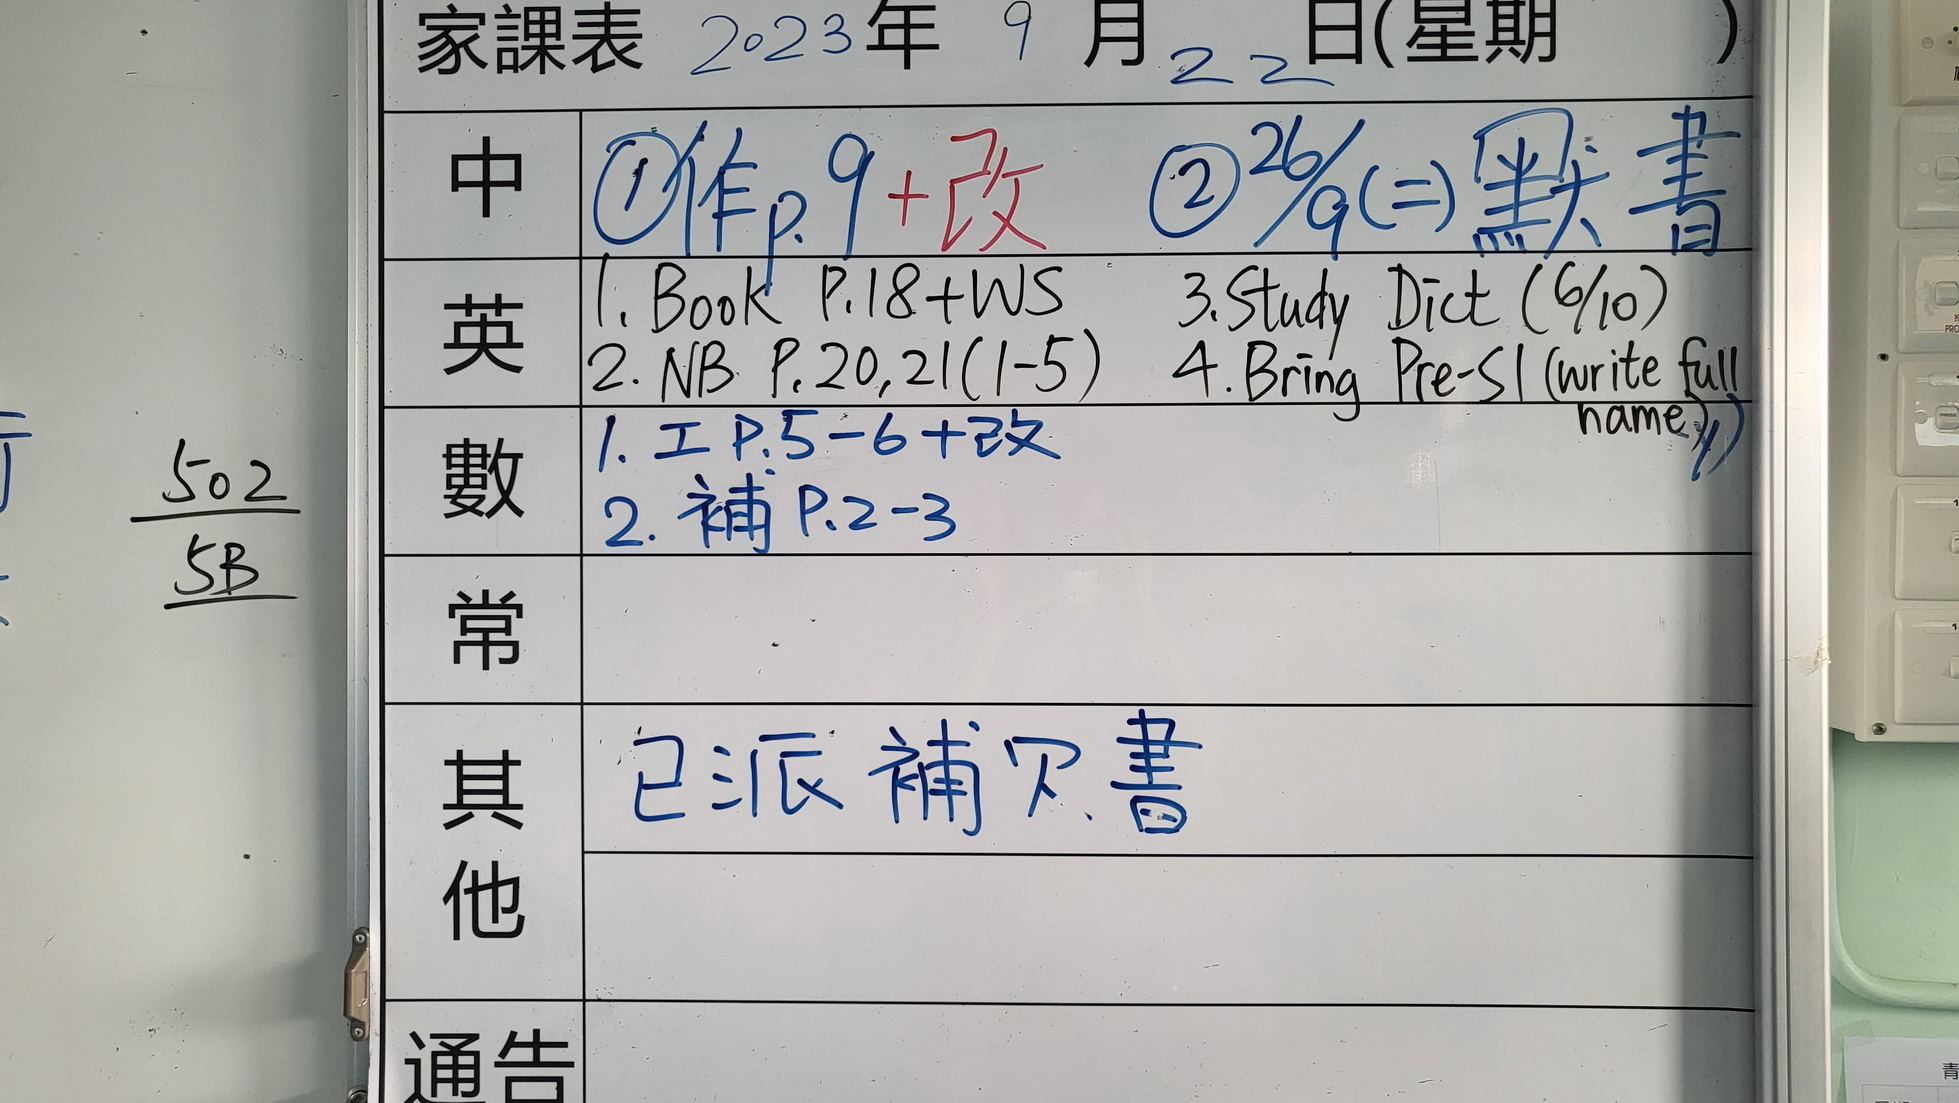 家課表 2023年 9月 22日(星期 )
中 ①作p.9+改 ②26/9(二)默書
英 1. Book P.18+WS 3.Study Dict (6/10)
2. NB P.20,21(1-5) 4.Bring Pre-S1 (write full name)
數 1. 工 P.5-6+改
2. 補 P.2-3
502
5B
常
其他 已派補欠書
通告
青